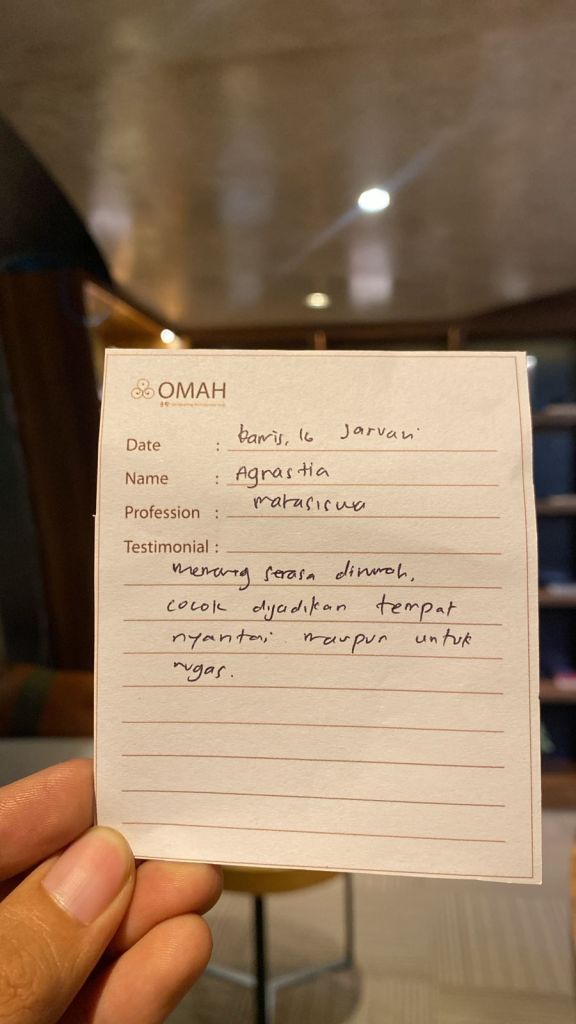 OMAH
Date : kamis, 16 Januari
Name : Agrastia
Profession : mahasiswa
Testimonial :
memang serasa dirumah,
cocok dijadikan tempat
nyantai maupun untuk
nugas.